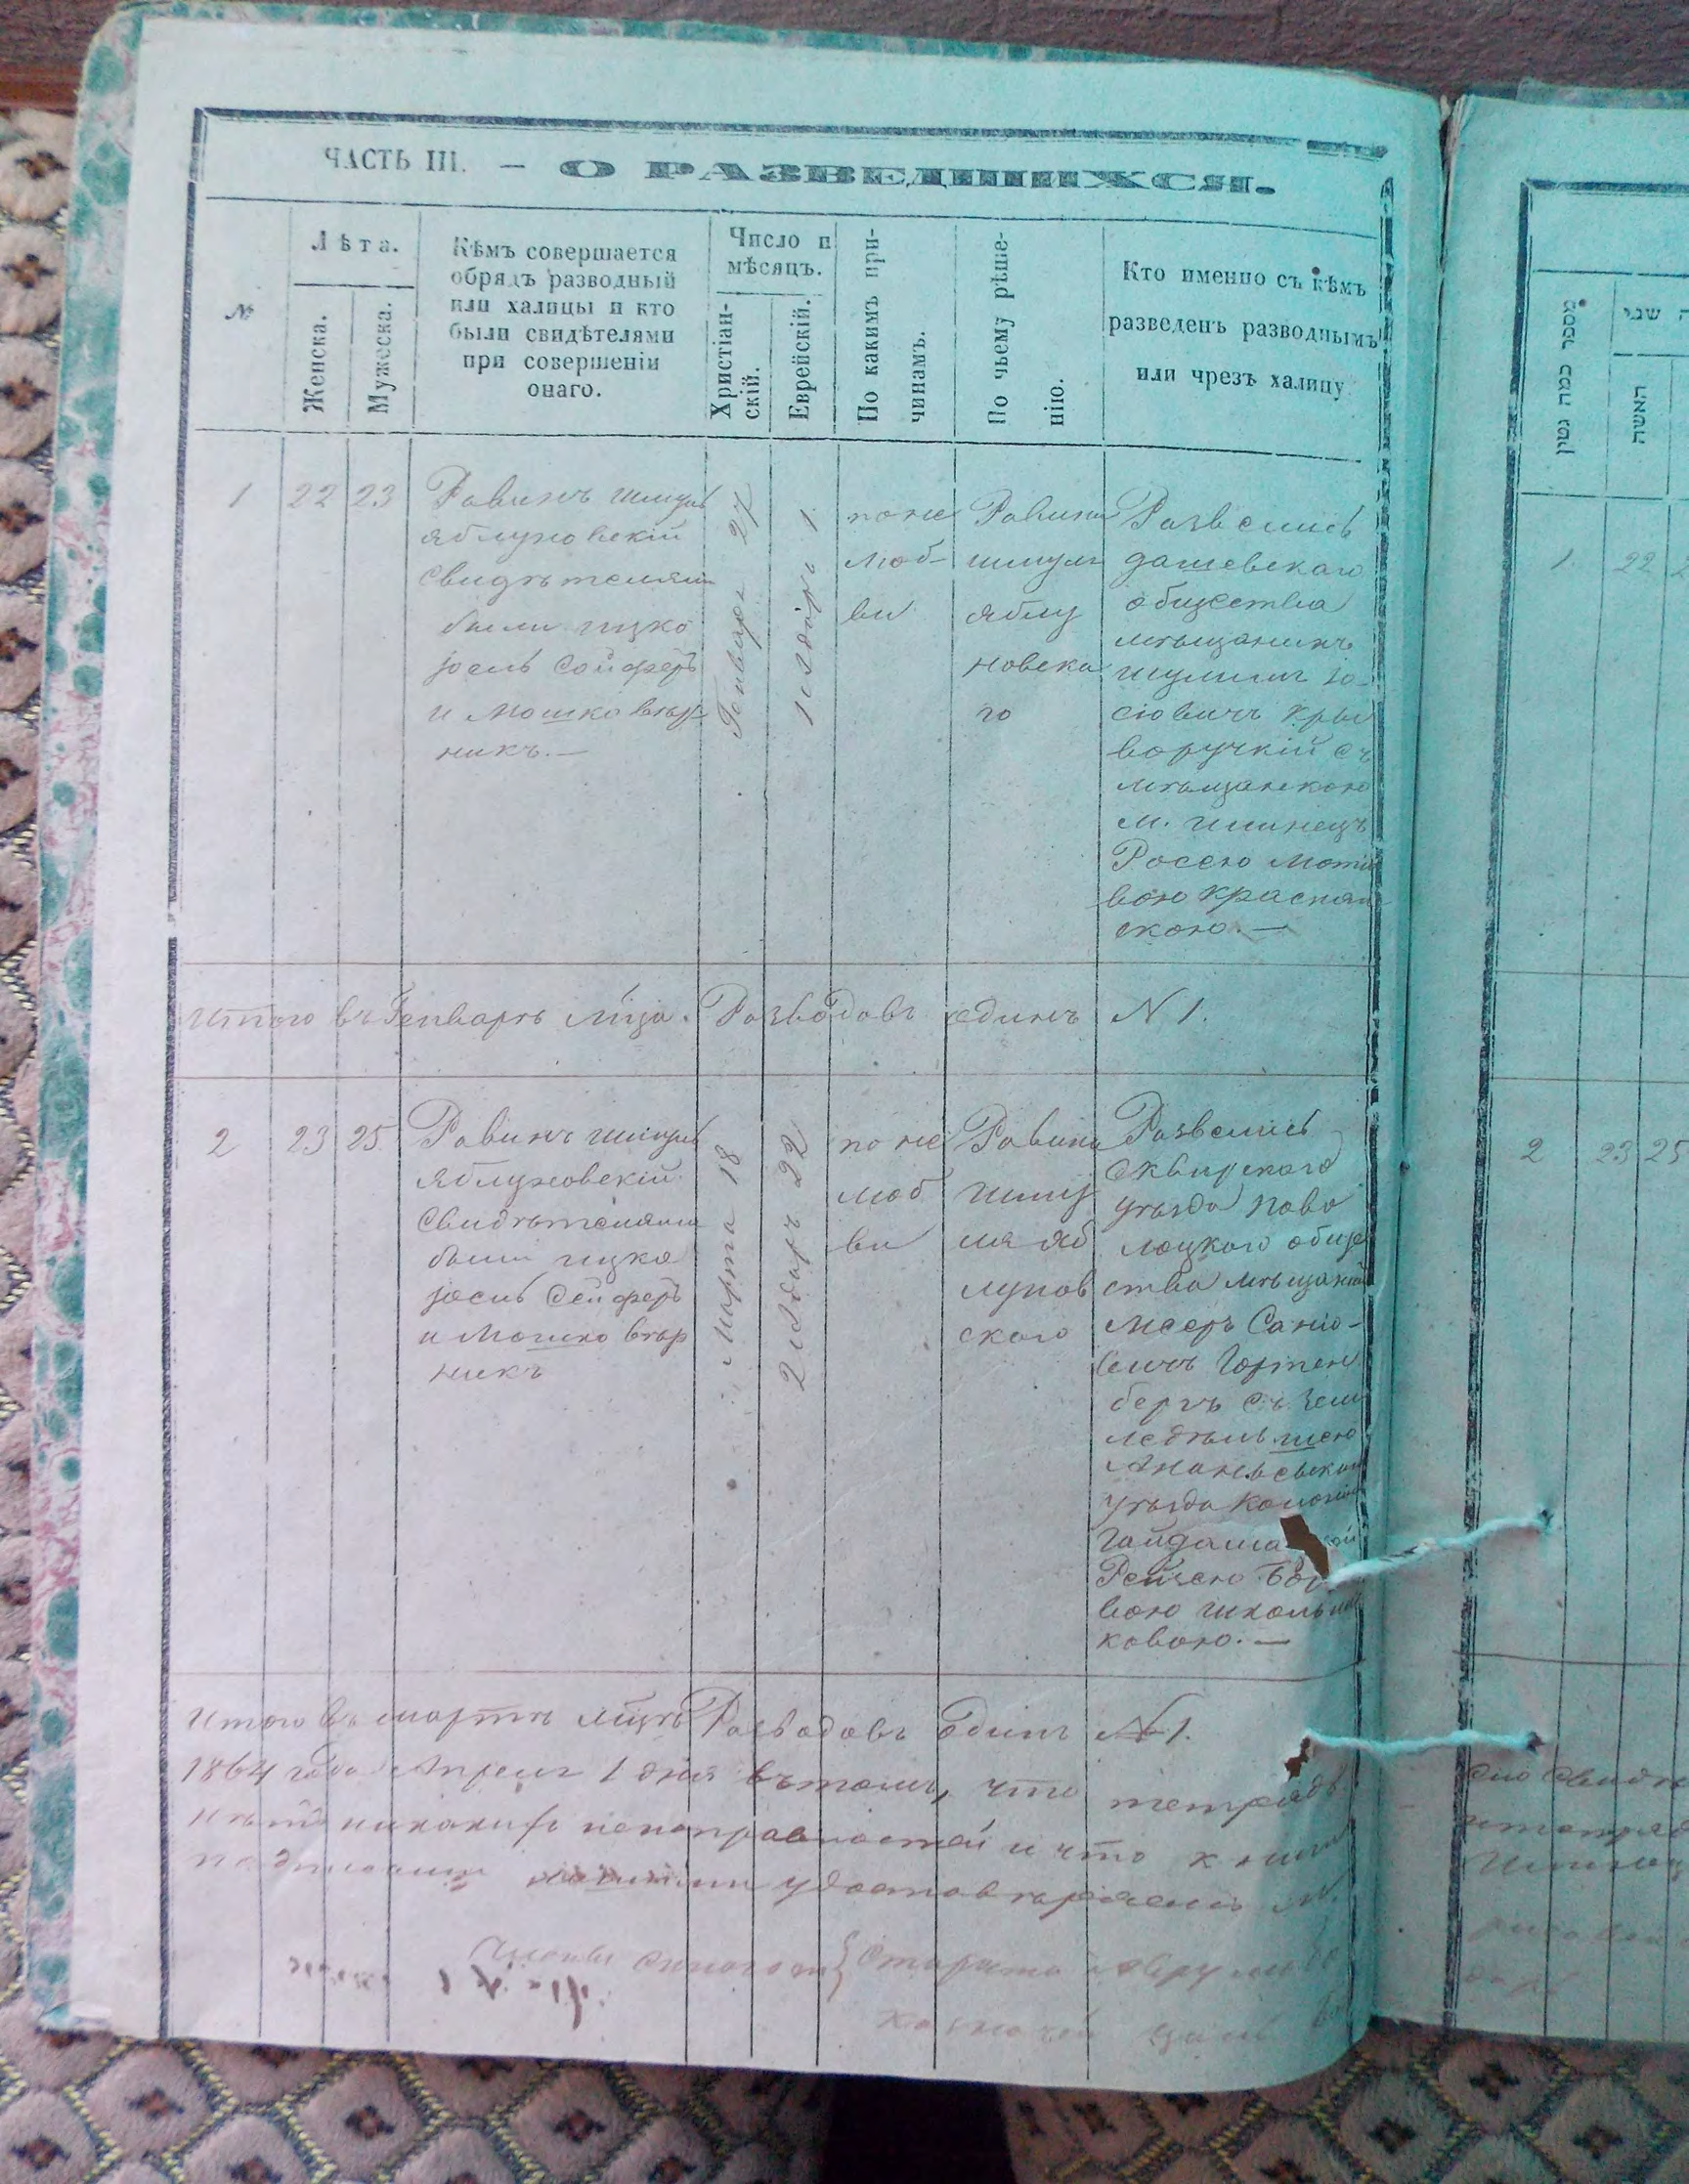 ЧАСТЬ III. — О РАЗВЕДШИХСЯ.
№
Лѣта.
Женска.
Мужеска.
Кѣмъ совершается
обрядъ разводный
или халицы и кто
были свидѣтелями
при совершеніи
онаго.
Число и
мѣсяцъ.
Христіан-
скій.
Еврейскій.
По какимъ при-
чинамъ.
По чьему рѣше-
нію.
Кто именно съ кѣмъ
разведенъ разводнымъ
или чрезъ халицу
1
22
23
Равинъ Шмуль
Яблуновскій
Свидѣтелями
были Ицко
Іось Сойферъ
и Мошко Вѣр
никъ.—
Генваря 27
1 Адаръ 1
по не
люб-
ви
Равина
Шмуля
Яблу
новска
го
Развелись
Дашевскаго
общества
мѣщанинъ
Шулимъ Іо-
сіовичъ Кры
воручкій съ
мѣщанкою
м. Илинецъ
Росею Мотіо
вою Краснян
скою.—
Итого въ Генварѣ м̃ца. Разводовъ единъ N 1.
2
23
25
Равинъ Шмуль
Яблуновскій
Свидѣтелями
были Ицко
Іось Сейферъ
и Мошко Вѣр
никъ
Марта 18
2 Адаръ 22
по не
люб
ви
Равина
Шму
ля Яб
лунов
ского
Развелись
Сквирского
уѣзда Паво
лоцкого обще
ства мѣщанин
Мееръ
берг съ Зем
ледѣльшею
Ананьевскаго
уѣзда Колоніи
Рейзею
вою Школьни
ковою.—
Итого въ мартѣ м̃цѣ Разводовъ Единъ N 1.
1864 года Апреля 1 дня въ томъ, что тетрадѣ
нѣтъ никакихъ неисправностей и что книги
подписами нашими удостовѣряемъ М.
Члены синагоги { Староста Аврум
казначей
מספר כמה גטין
האשה
1.
22
2
23
25
сію свидѣ